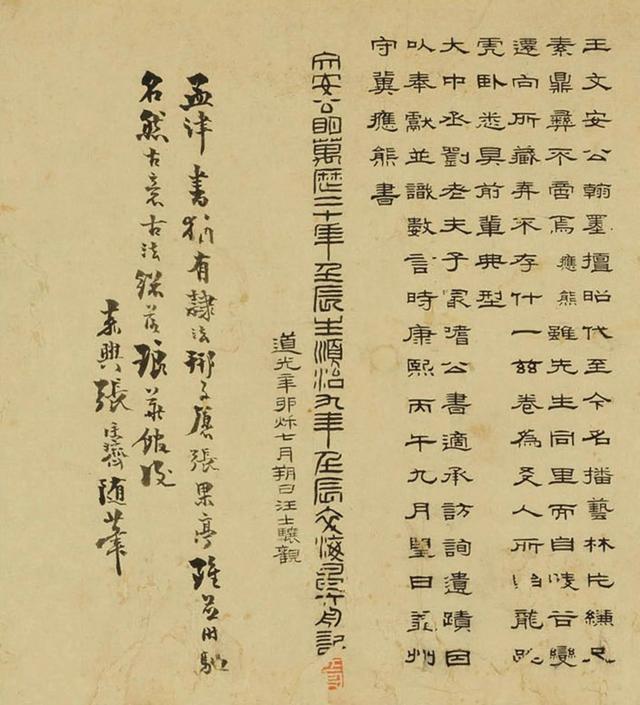 王文安公翰墨擅昭代至今名播藝林片縑尺
素鼎彝不啻焉應熊雖先生同里而自陵谷變
遷向所藏弆不存什一茲卷為友人所貽龍跳
虎臥悉具前輩典型
大中丞劉老夫子最嗜公書適承訪詢遺蹟因
以奉獻並識數言時康熙丙午九月望日益州
守冀應熊書
文安公明萬歷二十年壬辰生順治九年壬辰記
道光辛卯秌七月朔日汪士驤觀
孟津書有隸法邢子愿張果亭雖並時馳
名然古意古法落琅華館跋
張隨筆